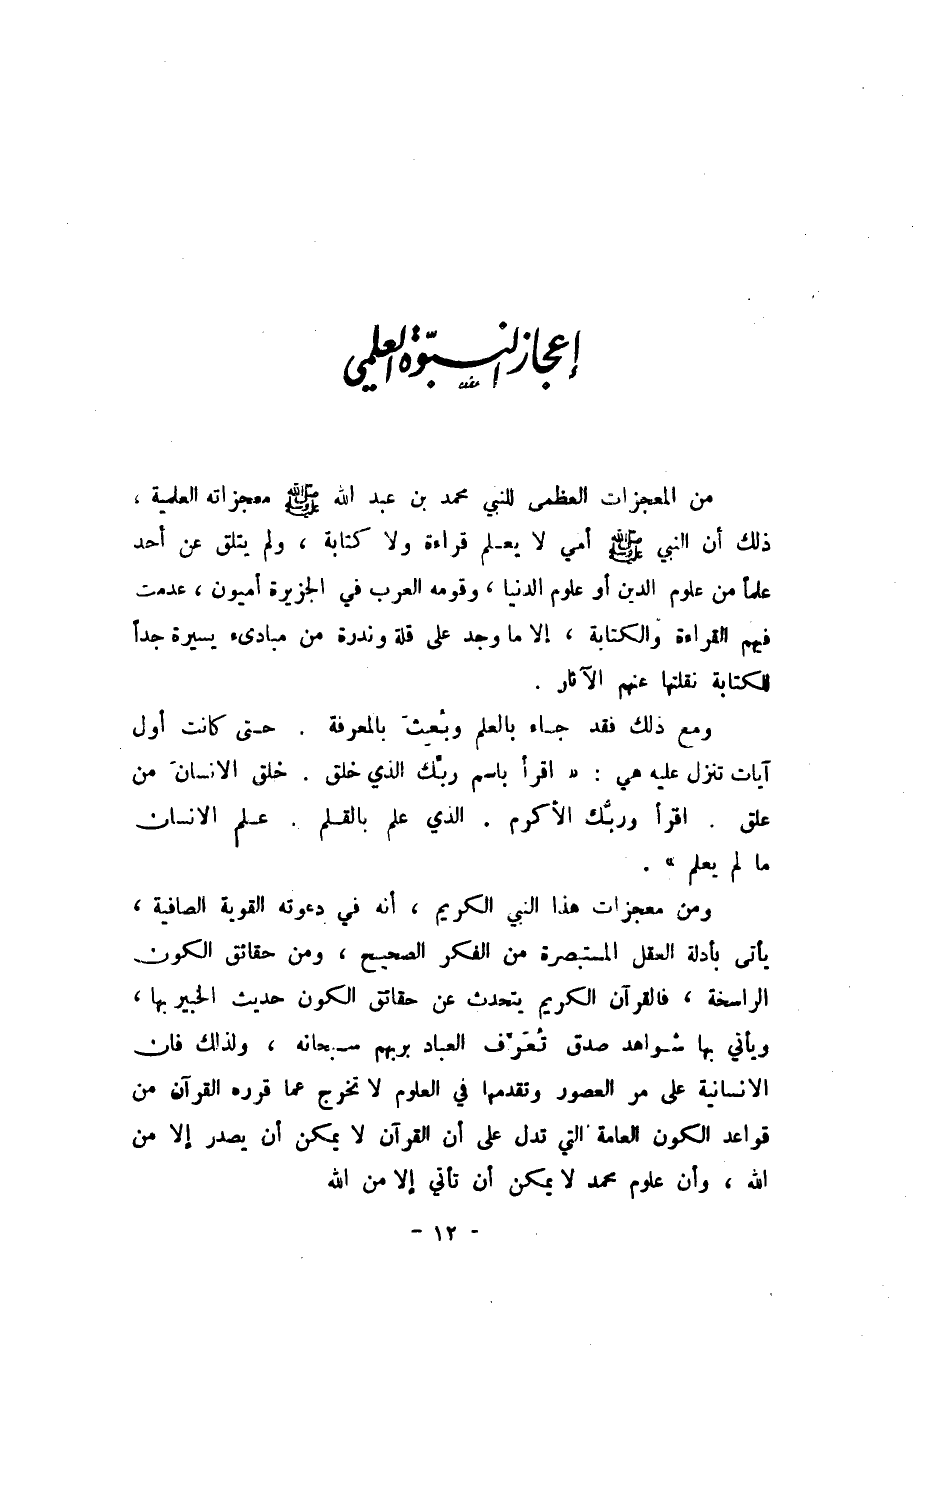 إعجاز النبوّة العلمي
من المعجزات العظمى للنبي محمد بن عبد الله ﷺ معجزاته العلمية ،
ذلك أن النبي ﷺ أمي لا يعلم قراءة ولا كتابة ، ولم يتلق عن أحد
علماً من علوم الدين أو علوم الدنيا ، وقومه العرب في الجزيرة أميون ، عدمت
فيهم القراءة والكتابة ، إلا ما وجد على قلة وندرة من مبادىء يسيرة جداً
للكتابة نقلتها عنهم الآثار .
ومع ذلك فقد جاء بالعلم وبُعِثَ بالمعرفة . حتى كانت أول
آيات تنزل عليه هي : « اقرأ باسم ربِّك الذي خلق . خلق الانسانَ من
علق . اقرأ وربُّك الأكرم . الذي علم بالقلم . علم الانسان
ما لم يعلم » .
ومن معجزات هذا النبي الكريم ، أنه في دعوته القوية الصافية ،
يأتى بأدلة العقل المستبصرة من الفكر الصحيح ، ومن حقائق الكون
الراسخة ، فالقرآن الكريم يتحدث عن حقائق الكون حديث الخبير بها ،
ويأتي بها شواهد صدق تُعَرِّف العباد بربهم سبحانه ، ولذلك فان
الانسانية على مر العصور وتقدمها في العلوم لا تخرج عما قرره القرآن من
قواعد الكون العامة التي تدل على أن القرآن لا يمكن أن يصدر إلا من
الله ، وأن علوم محمد لا يمكن أن تأتي إلا من الله
- ١٢ -